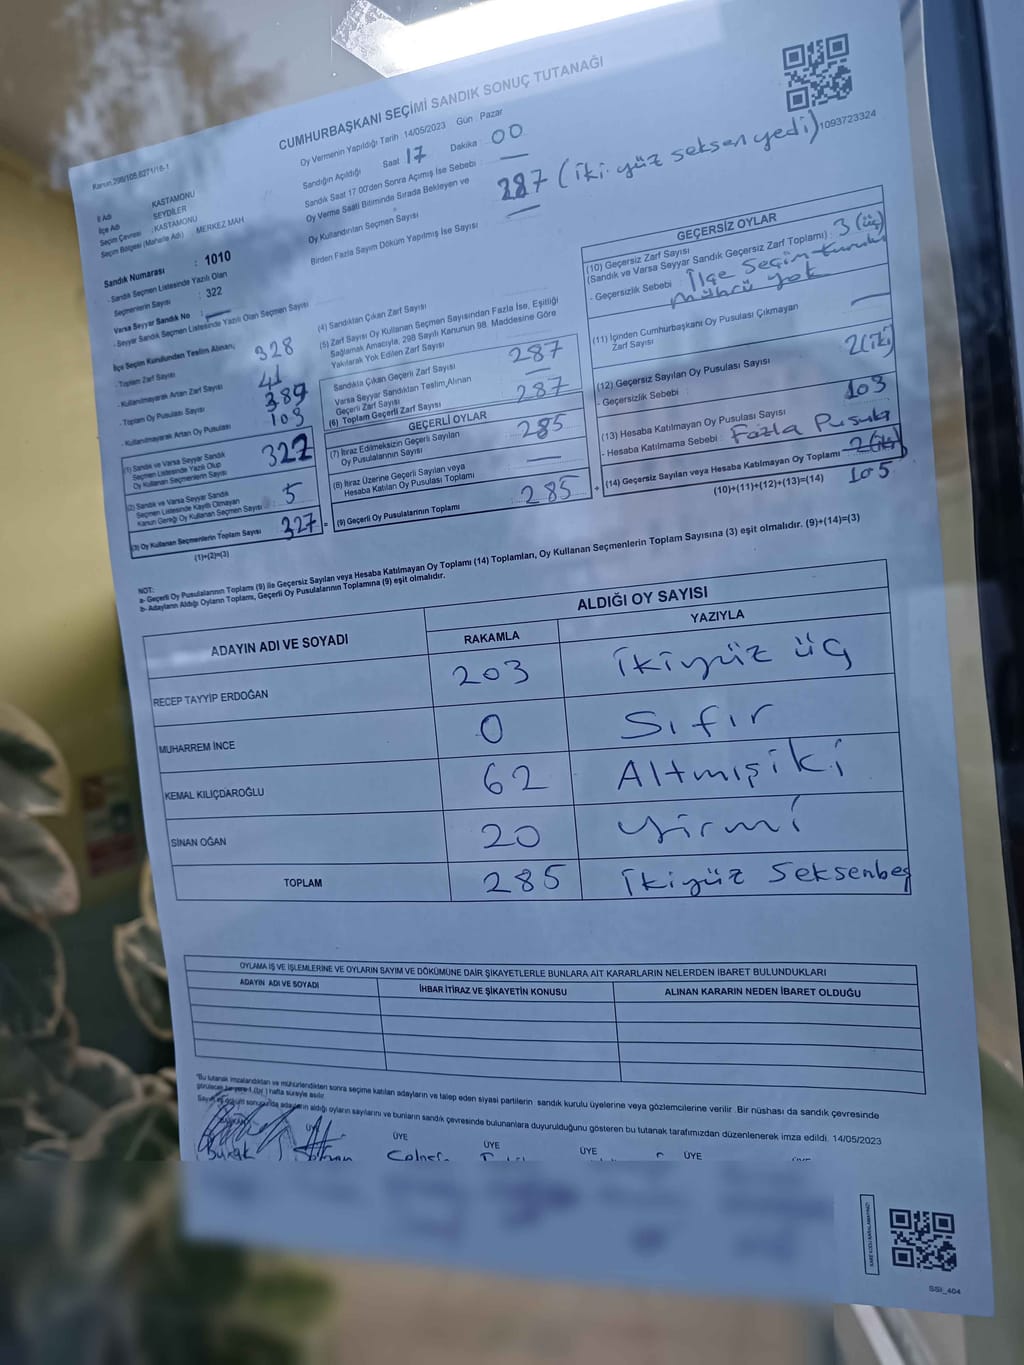 CUMHURBAŞKANI SEÇİMİ SANDIK SONUÇ TUTANAĞI
Kanun.298/105,6271/18-1
Oy Vermenin Yapıldığı Tarih 14/05/2023 Gün Pazar
Sandığın Açıldığı Saat 17 Dakika : 00
Sandık Saat 17.00'den Sonra Açımış İse Sebebi
Oy Verme Saati Bitiminde Sırada Bekleyen ve
Oy Kullandırılan Seçmen Sayısı
287 (iki yüz seksen yedi)
1093723324
Birden Fazla Sayım Döküm Yapılmış İse Sayısı
İl Adı KASTAMONU
İlçe Adı SEYDİLER
Seçim Çevresi : KASTAMONU
Seçim Bölgesi (Mahalle Adı) MERKEZ MAH
Sandık Numarası : 1010
- Sandık Seçmen Listesinde Yazılı Olan
Seçmenlerin Sayısı : 322
Varsa Seyyar Sandık No :
- Seyyar Sandık Seçmen Listesinde Yazılı Olan Seçmen Sayısı
İlçe Seçim Kurulundan Teslim Alınan;
- Toplam Zarf Sayısı 328
- Kullanılmayarak Artan Zarf Sayısı 41
- Toplam Oy Pusulası Sayısı 389
- Kullanılmayarak Artan Oy Pusulası 103
(1) Sandık ve Varsa Seyyar Sandık
Seçmen Listesinde Yazılı Olup
Oy Kullanan Seçmenlerin Sayısı 322
(2) Sandık ve Varsa Seyyar Sandık
Seçmen Listesinde Kayıtlı Olmayan
Kanun Gereği Oy Kullanan Seçmen Sayısı : 5
(3) Oy Kullanan Seçmenlerin Toplam Sayısı 327 =
(1)+(2)=(3)
(4) Sandıktan Çıkan Zarf Sayısı
(5) Zarf Sayısı Oy Kullanan Seçmen Sayısından Fazla İse, Eşitliği
Sağlamak Amacıyla, 298 Sayılı Kanunun 98. Maddesine Göre
Yakılarak Yok Edilen Zarf Sayısı
Sandıkta Çıkan Geçerli Zarf Sayısı 287
Varsa Seyyar Sandıktan Teslim Alınan
Geçerli Zarf Sayısı
(6) Toplam Geçerli Zarf Sayısı 287
GEÇERLİ OYLAR
(7) İtiraz Edilmeksizin Geçerli Sayılan
Oy Pusulalarının Sayısı 285
(8) İtiraz Üzerine Geçerli Sayılan veya
Hesaba Katılan Oy Pusulası Toplamı
(9) Geçerli Oy Pusulalarının Toplamı 285 +
GEÇERSİZ OYLAR
(10) Geçersiz Zarf Sayısı
(Sandık ve Varsa Seyyar Sandık Geçersiz Zarf Toplamı) : 3 (üç)
- Geçersizlik Sebebi : İlçe Seçim kurulu
mührü yok
(11) İçinden Cumhurbaşkanı Oy Pusulası Çıkmayan
Zarf Sayısı
(12) Geçersiz Sayılan Oy Pusulası Sayısı 2(iki)
- Geçersizlik Sebebi :
(13) Hesaba Katılmayan Oy Pusulası Sayısı 103
- Hesaba Katılmama Sebebi : Fazla Pusula
(14) Geçersiz Sayılan veya Hesaba Katılmayan Oy Toplamı 2(iki)
(10)+(11)+(12)+(13)=(14) 105
NOT:
a- Geçerli Oy Pusulalarının Toplamı (9) ile Geçersiz Sayılan veya Hesaba Katılmayan Oy Toplamı (14) Toplamları, Oy Kullanan Seçmenlerin Toplam Sayısına (3) eşit olmalıdır. (9)+(14)=(3)
b- Adayların Aldığı Oyların Toplamı, Geçerli Oy Pusulalarının Toplamına (9) eşit olmalıdır.
ADAYIN ADI VE SOYADI ALDIĞI OY SAYISI
RAKAMLA YAZIYLA
RECEP TAYYİP ERDOĞAN 203 ikiyüz üç
MUHARREM İNCE 0 Sıfır
KEMAL KILIÇDAROĞLU 62 Altmışiki
SİNAN OĞAN 20 yirmi
TOPLAM 285 ikiyüz Seksenbeş
OYLAMA İŞ VE İŞLEMLERİNE VE OYLARIN SAYIM VE DÖKÜMÜNE DAİR ŞİKAYETLERLE BUNLARA AİT KARARLARIN NELERDEN İBARET BULUNDUKLARI
ADAYIN ADI VE SOYADI İHBAR İTİRAZ VE ŞİKAYETİN KONUSU ALINAN KARARIN NEDEN İBARET OLDUĞU
*Bu tutanak imzalandıktan ve mühürlendikten sonra seçime katılan adayların ve talep eden siyasi partilerin sandık kurulu üyelerine veya gözlemcilerine verilir. Bir nüshası da sandık çevresinde
görülecek bir yere 1 (bir) hafta süreyle asılır.
Sayım ve döküm sonucunda adayların aldığı oyların sayılarını ve bunların sandık çevresinde bulunanlara duyurulduğunu gösteren bu tutanak tarafımızdan düzenlenerek imza edildi. 14/05/2023
ÜYE ÜYE ÜYE ÜYE
Burak
SSI_404